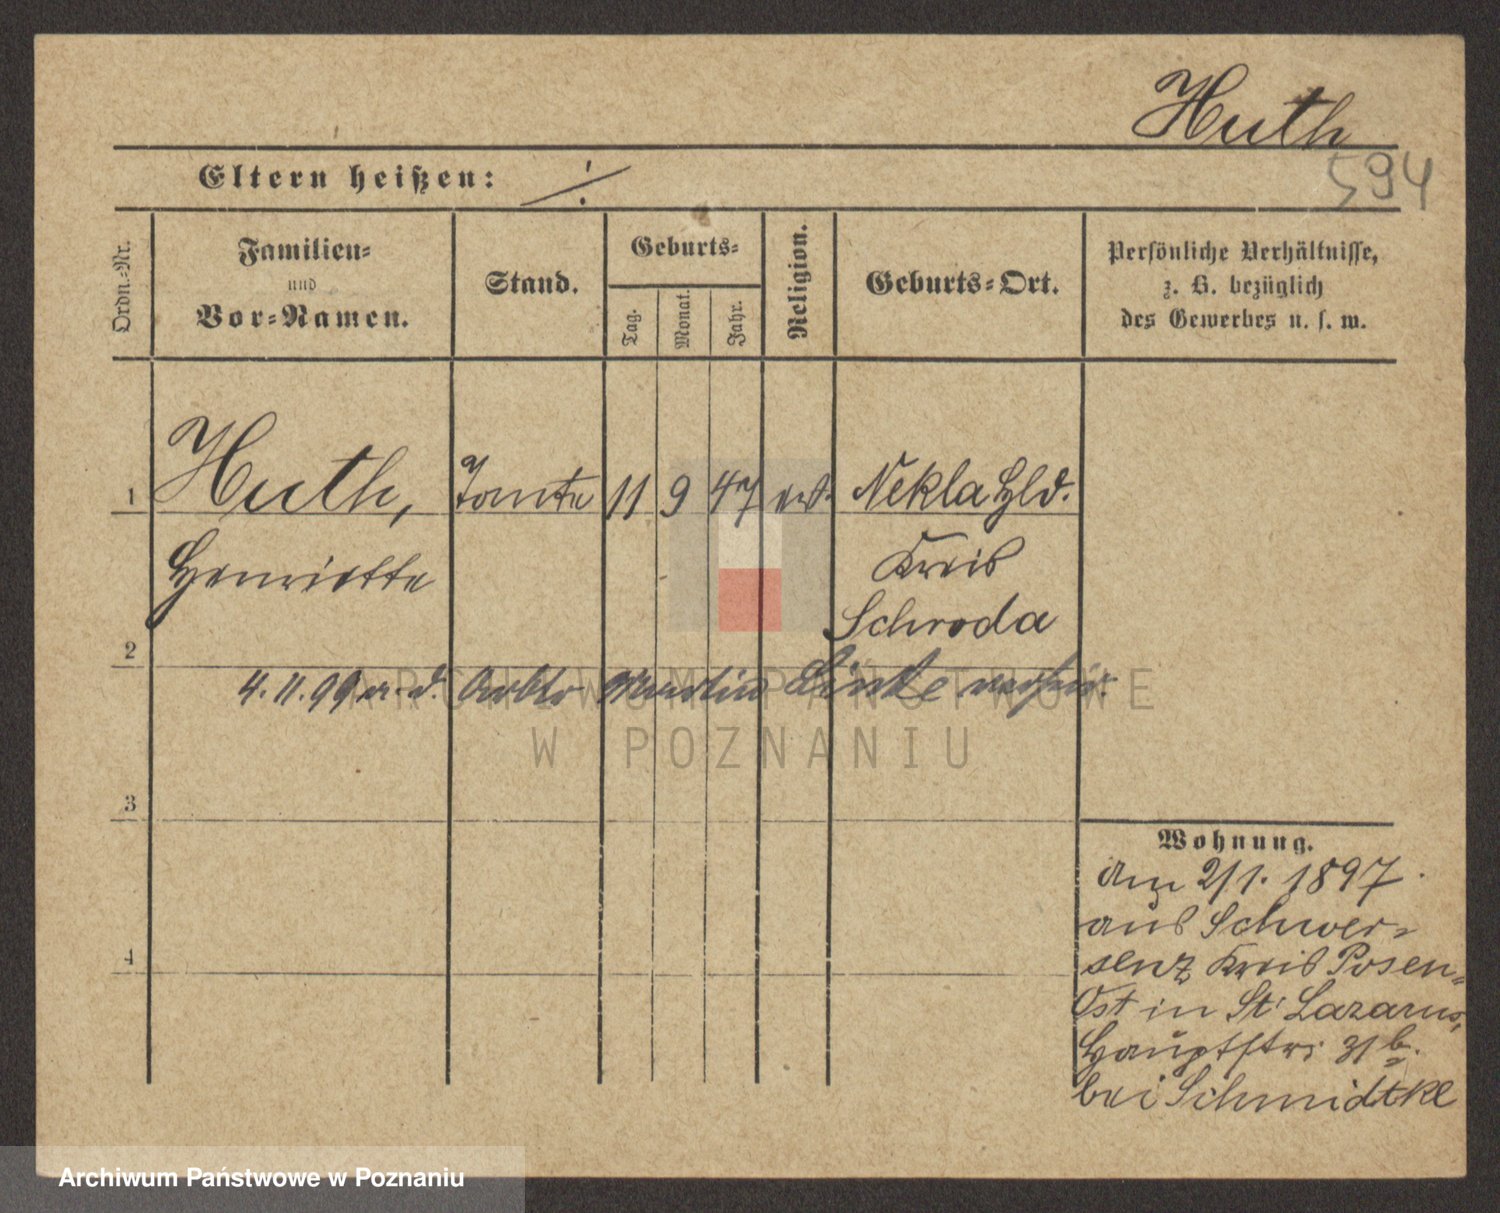 Huth
594
Eltern heißen: ./.
Ordn.-Nr.
Familien-
und
Vor-Namen.
Stand.
Geburts-
Tag.
Monat.
Jahr.
Religion.
Geburts-Ort.
Persönliche Verhältnisse,
z. B. bezüglich
des Gewerbes u. s. w.
1 Huth, Tante 11 9 47 ev. Nekla Hld.
Henriette Kreis
Schroda
2
4.11.99 m. d. Arbtr Martin Linke verheir.
ARCHIWUM PAŃSTWOWE
W POZNANIU
3
Wohnung.
am 2/1. 1897
aus Schwer-
senz Kreis Posen-
4
Ost in St. Lazarus,
Hauptstr. 31 b.
bei Schmidtke
Archiwum Państwowe w Poznaniu